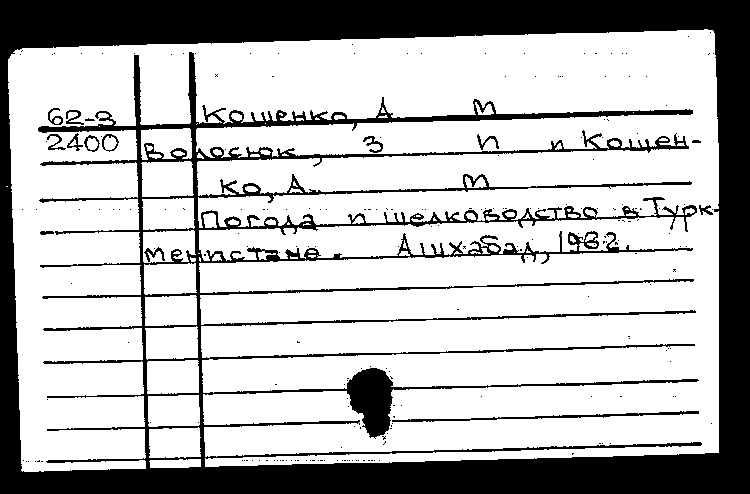 62-3 Кошенко, А М
2400 Волосюк, З П и Кошен-
ко, А. М
Погода и шелководство в Турк-
менистане. Ашхабад, 1962.